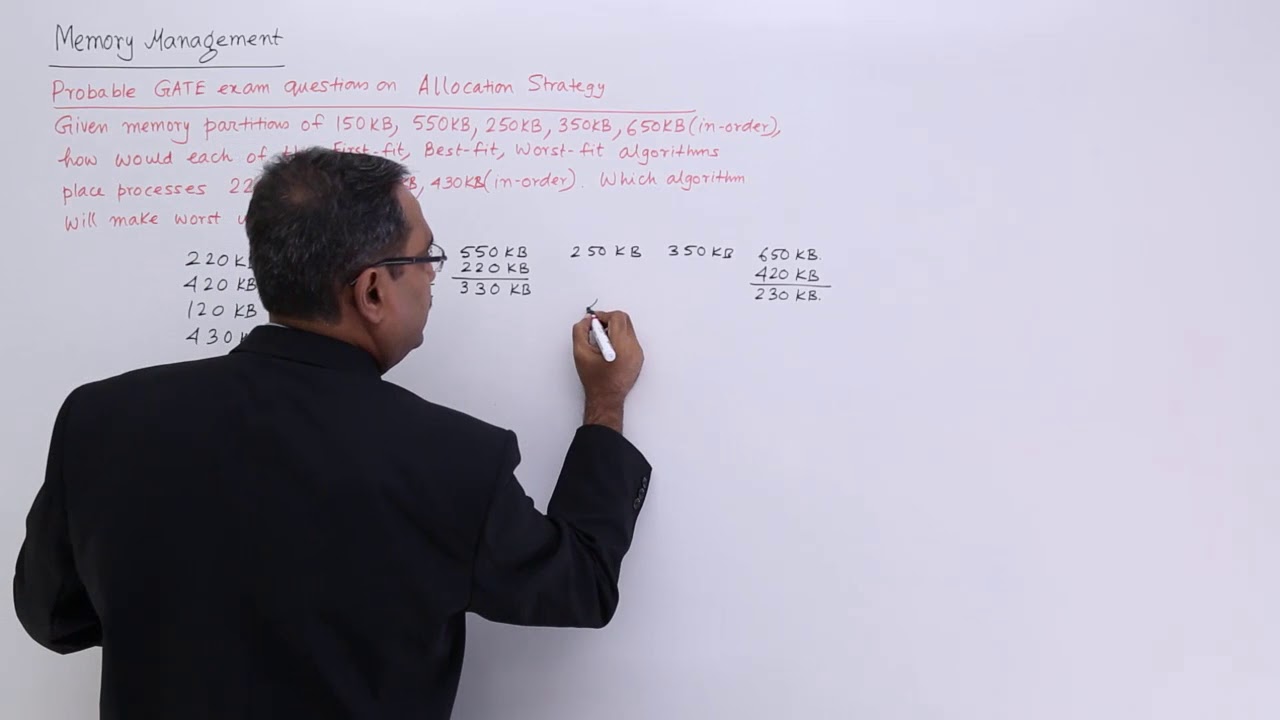 Memory Management
Probable GATE exam questions on Allocation Strategy
Given memory partitions of 150KB, 550KB, 250KB, 350KB, 650KB(in-order),
how would each of First-fit, Best-fit, Worst-fit algorithms
place processes 430KB(in-order). Which algorithm
will make worst
220 550 KB 250 KB 350 KB 650 KB.
420 KB 220 KB 420 KB
120 KB 330 KB 230 KB.
430